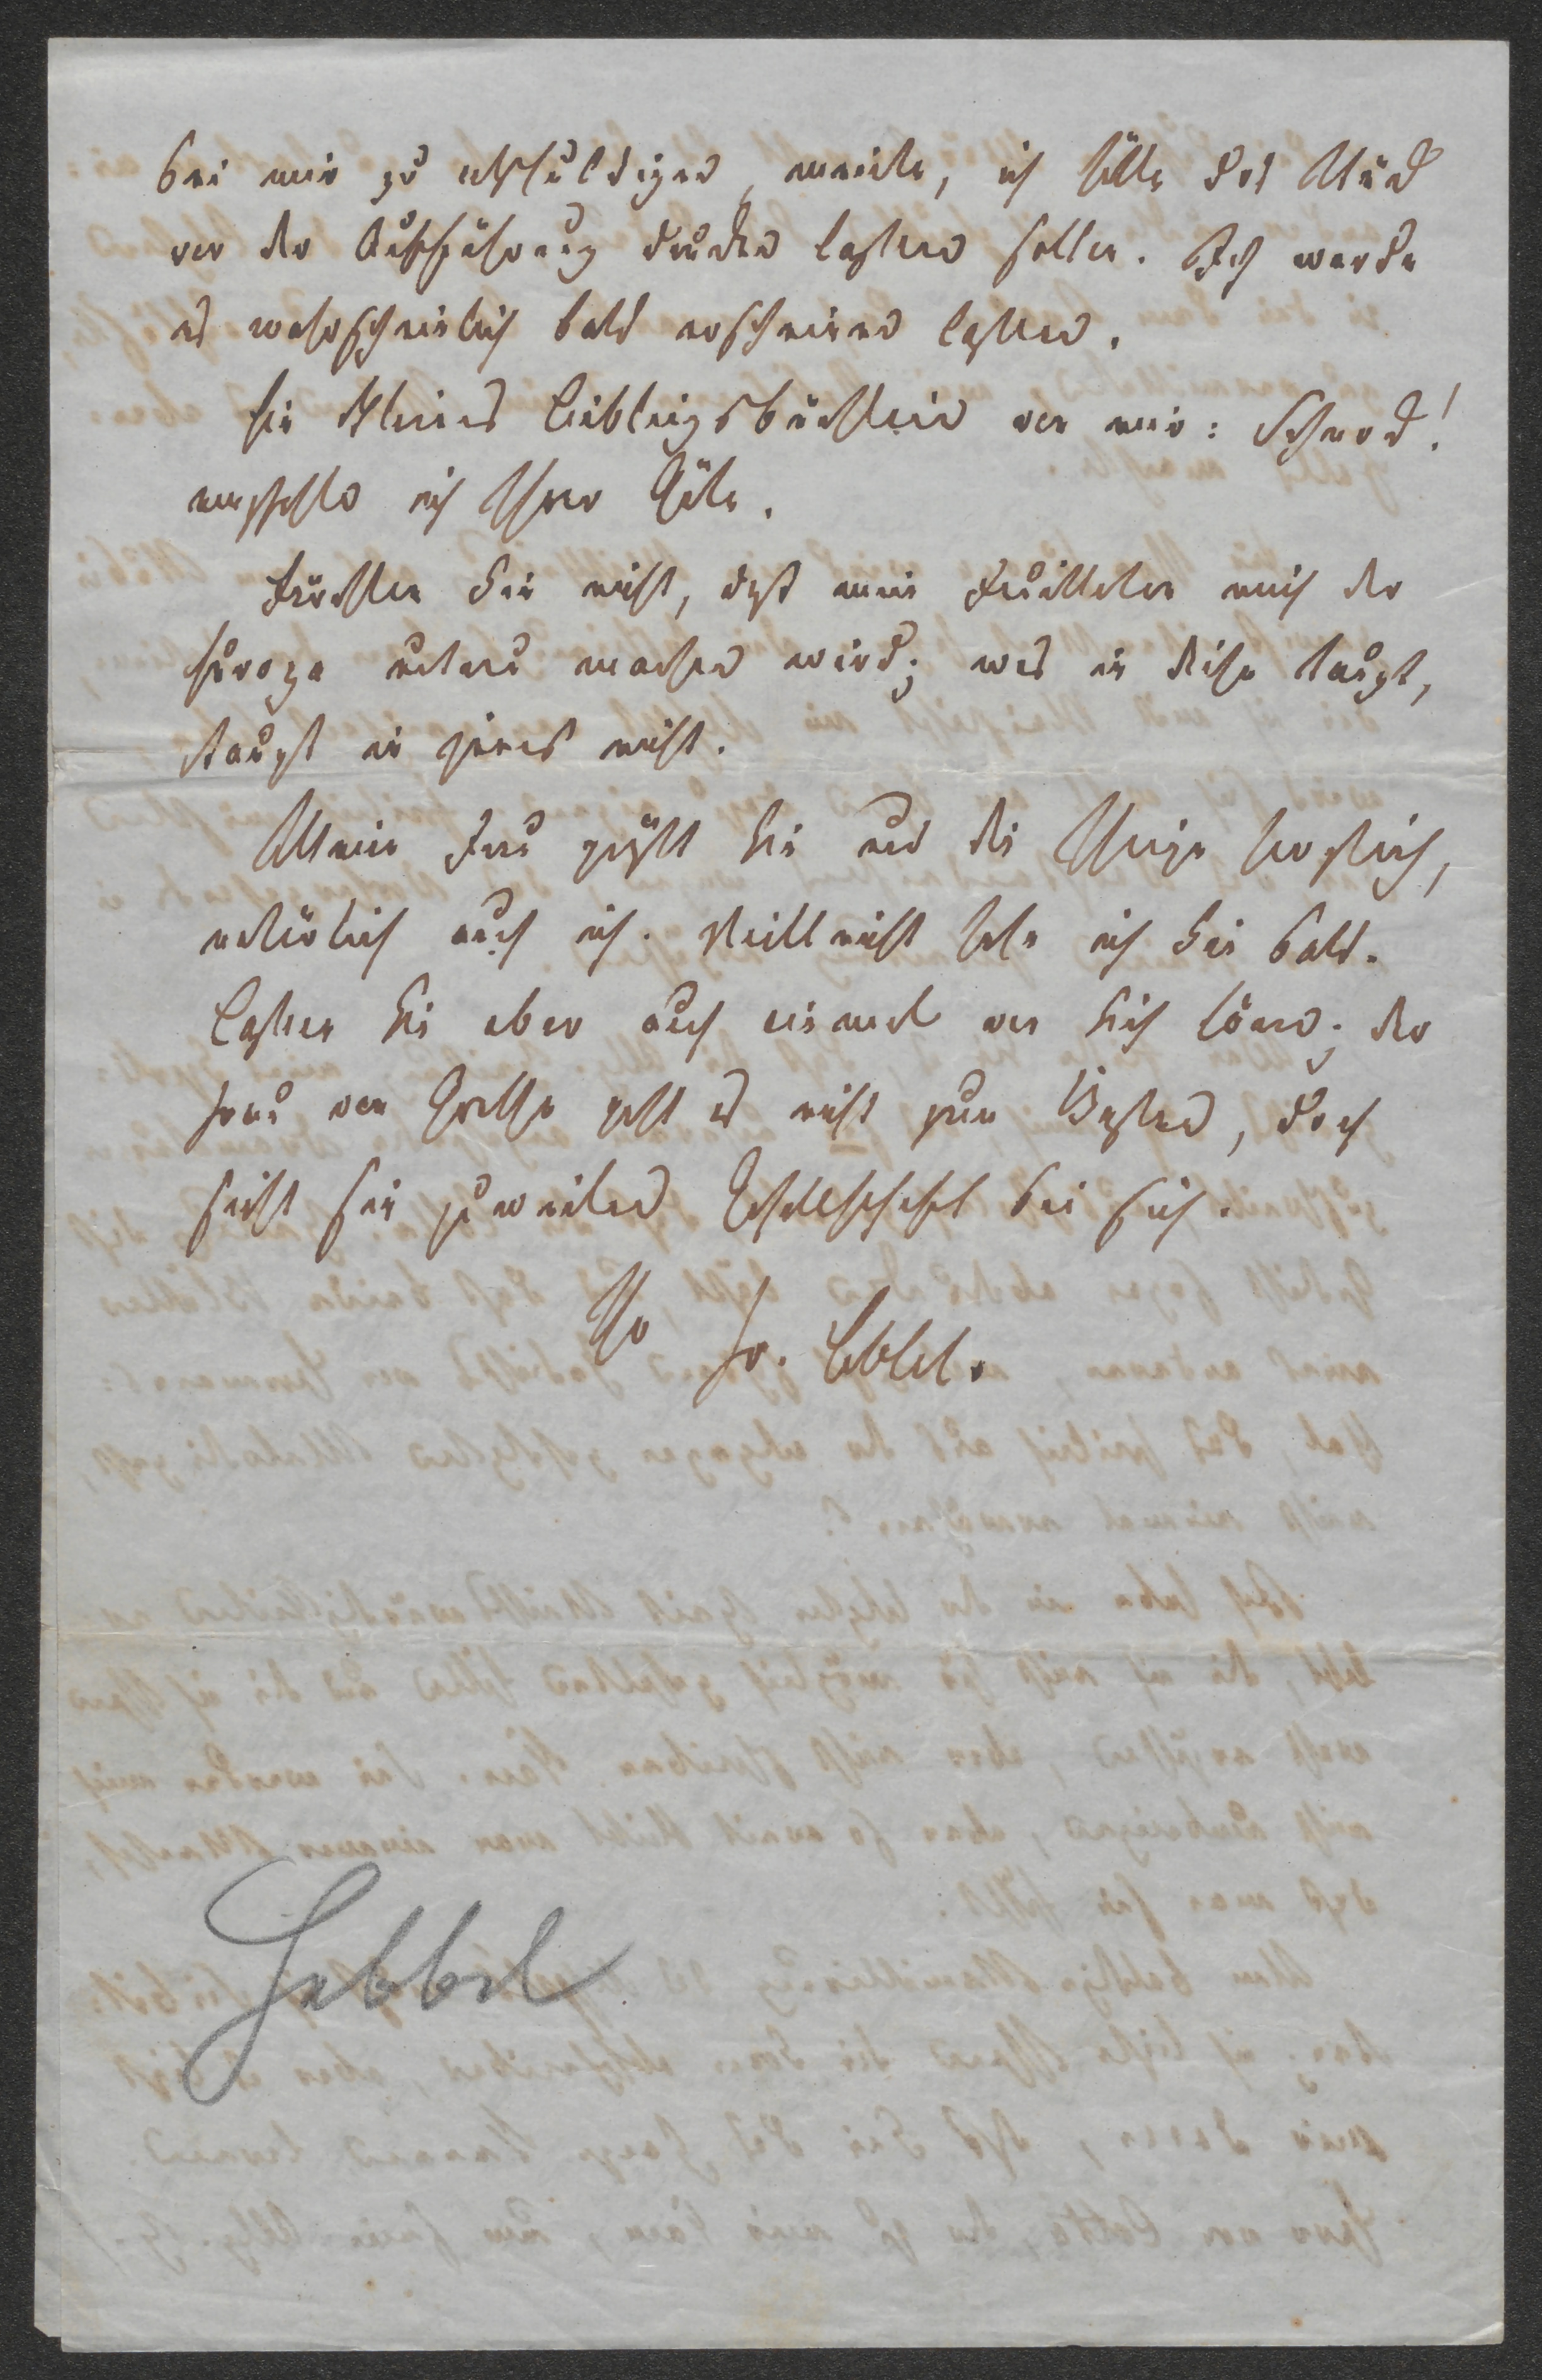 bei mir zu entschuldigen, meinte, ich hätte das Stück
vor der Aufführung drucken lassen sollen. Ich werde
es wahrscheinlich bald erscheinen lassen.
Ein kleines Lieblingsbüchlein von mir: Schnock!
empfehle ich Ihrer Güte.
Fürchten Sie nicht, daß mein Feuilleton mich der
Europa untreu machen wird; was in diese taugt,
taugt in jenes nicht.
Meine Frau grüßt Sie und die Ihrige herzlich,
natürlich auch ich. Vielleicht sehe ich Sie bald.
Lassen Sie aber auch einmal von Sich hören; der
Frau von Goethe geht es nicht zum Besten, doch
sieht sie zuweilen Gesellschaft bei sich.
Ihr Fr. Hebbel.
Hebbel